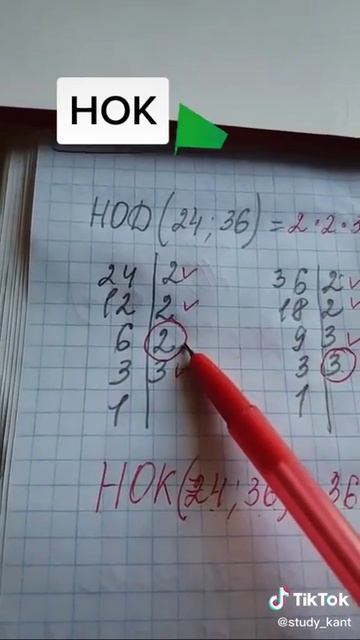 НОК
НОД(24;36)=2·2·3
24 | 2✓ 36 | 2✓
12 | 2✓ 18 | 2✓
6 | 2 9 | 3✓
3 | 3✓ 3 | 3
1 | 1 |
НОК(24;36) 36
TikTok
@study_kant